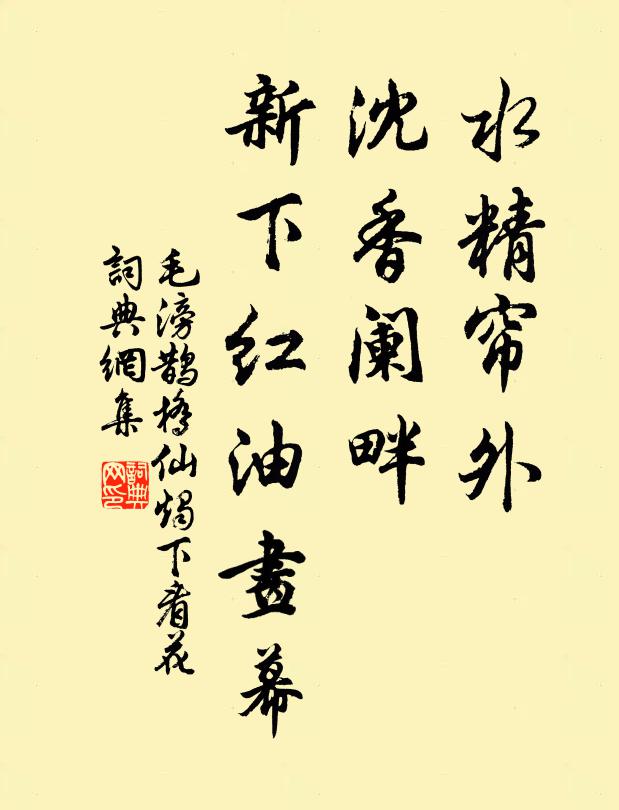 水精帘外
沈香阑畔
新下红油畫幕
毛滂鵲橋仙燭下看花
詞典網集
詞典网印